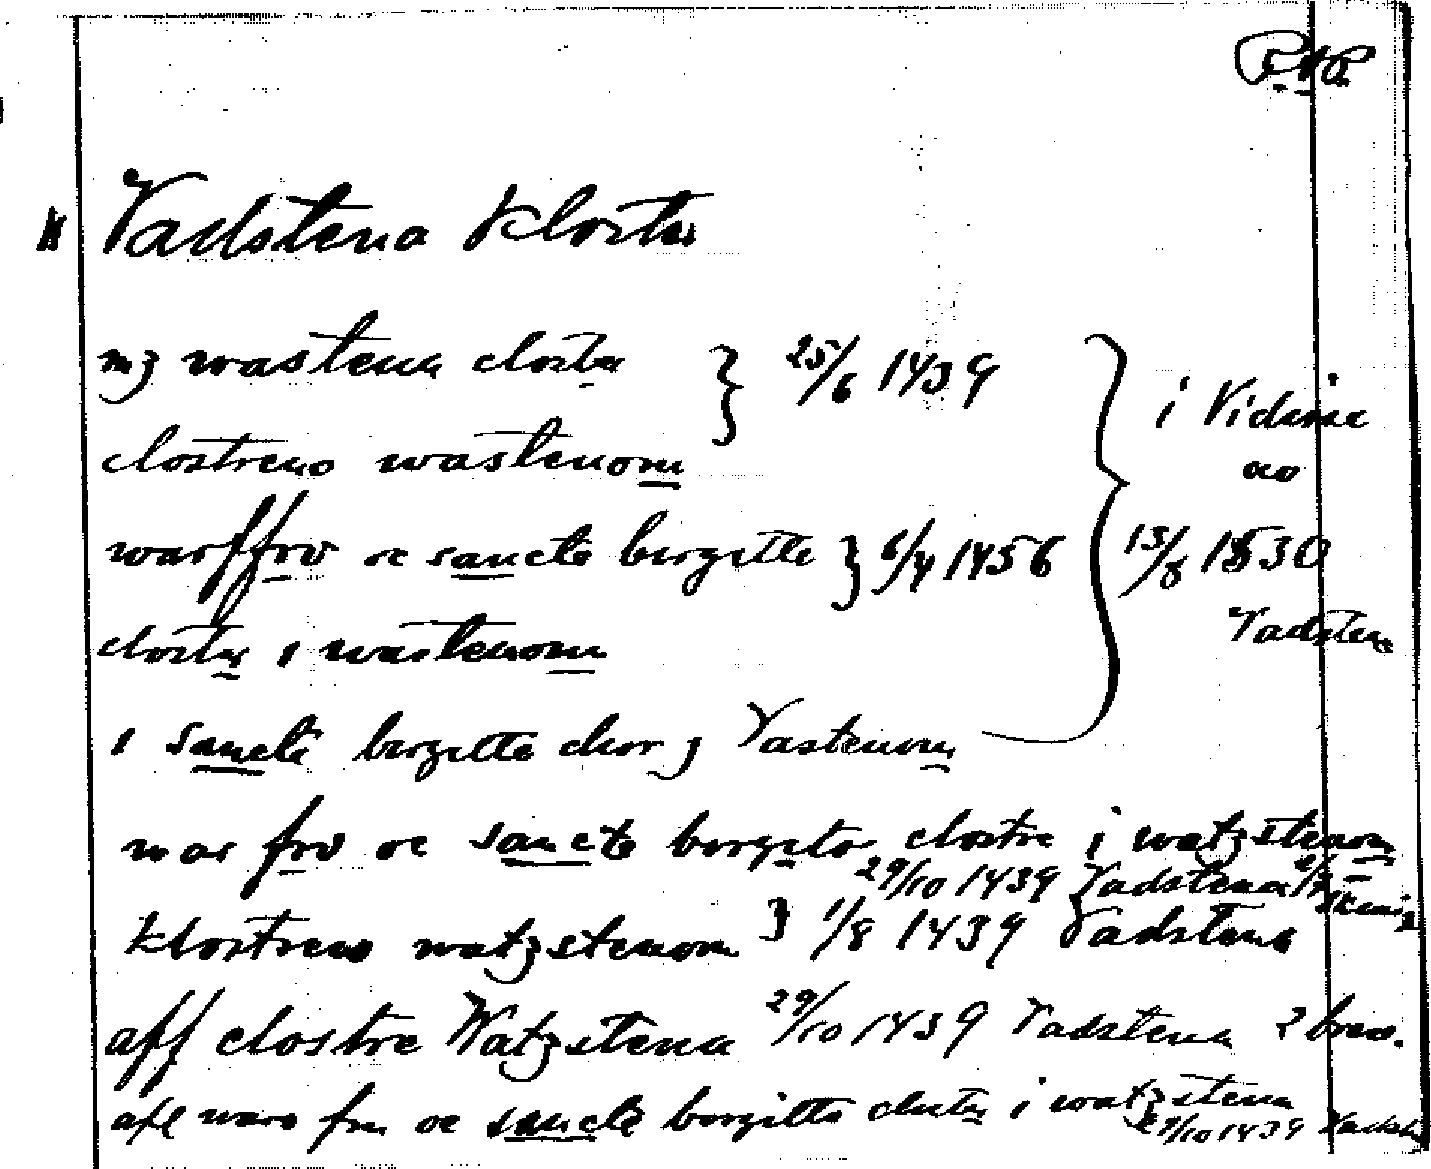 Vadstena kloster
mz wastena closter } 25/6 1439
i Vidisse
clostreno wastenom
ao
warffrv oc sancte birgitte } 6/4 1456
13/8 1530
closter i wastenom
Vadstena
i sancte birgitte chor j Vastenom
war frv oc sancte birgitto clostre i watzstenom
29/10 1439 Vadstena
klostreno watzstenom } 1/8 1439 Vadstena
aff clostre Watzstena 29/10 1439 Vadstena 2 brev.
aff waro fru oc sancte birgitte closter i watzstena
29/10 1439 Vadst